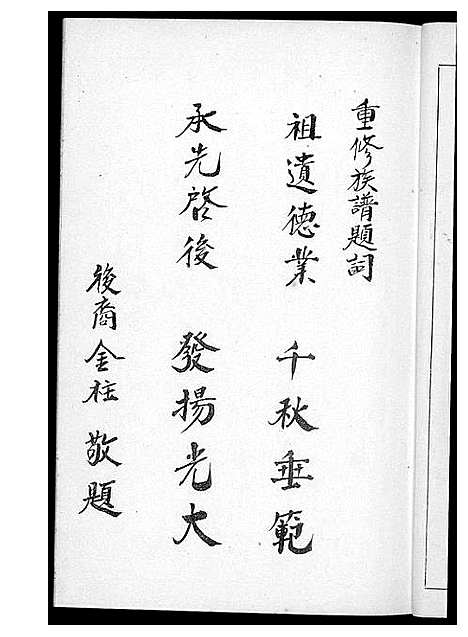 重修族譜題詞
祖遺德業 千秋垂範
承先啓後 發揚光大
後裔金柱 敬題